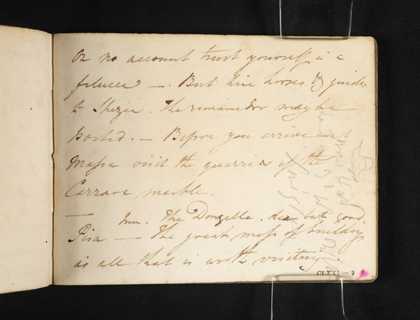 On no account trust yourself in a
felucca —. But hire horses & guide
to Spezia. The remainder may be
posted. — Before you arrive at
Massa visit the quarries of the
Carrara marble.
— Inn. The Donzelle. dear but good.
Pisa — The great mass of building
is all that is worth visiting.